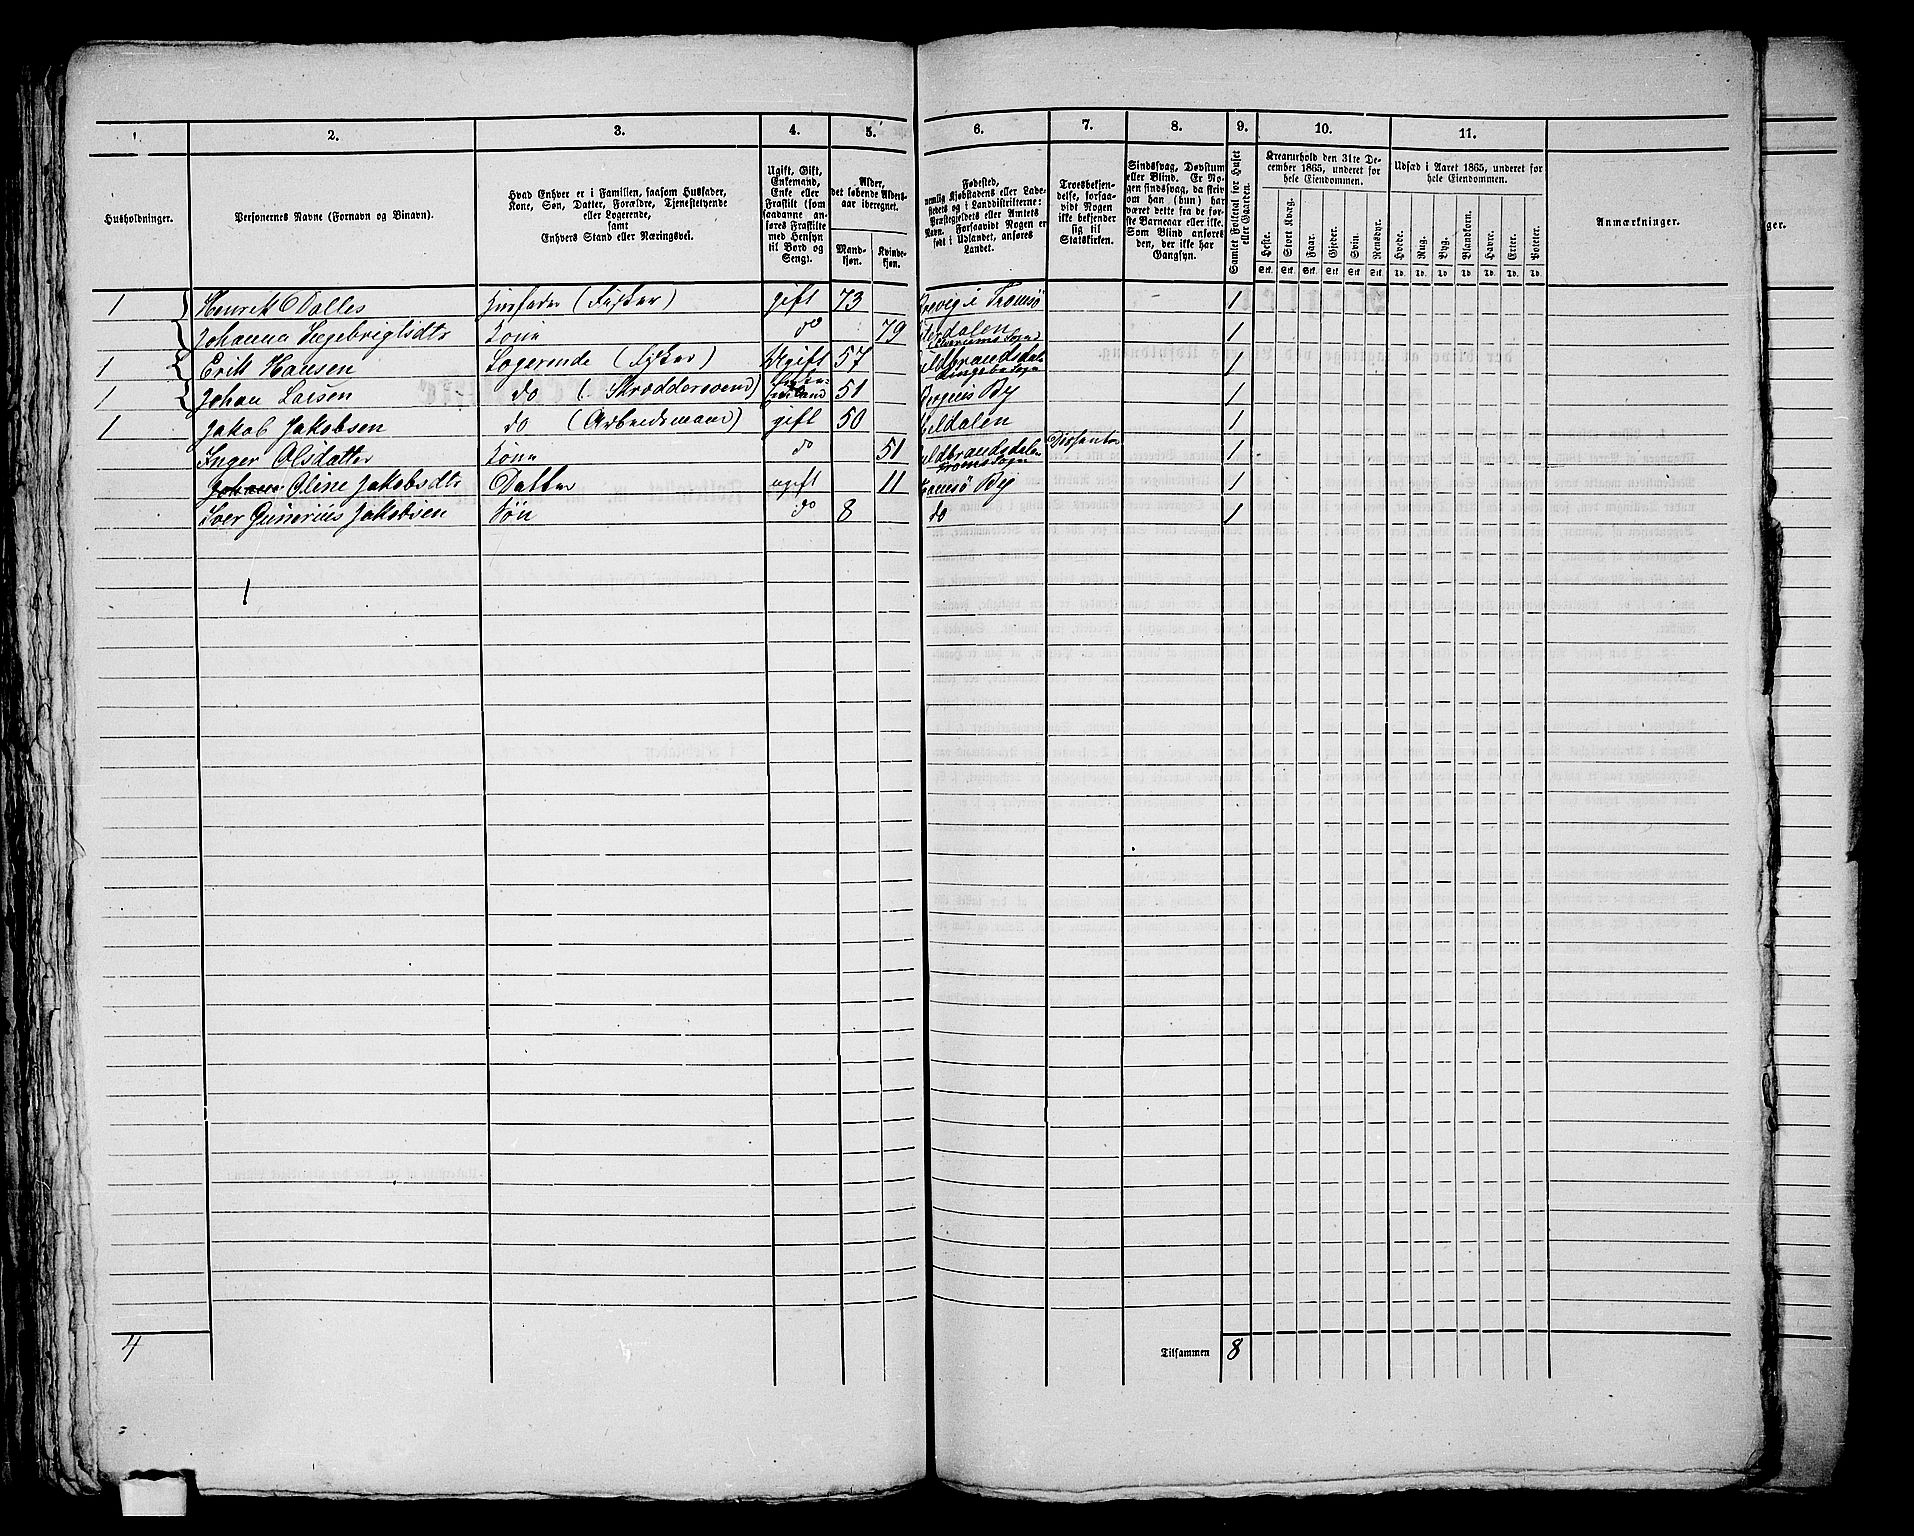 1. 2. 3. 4. 5. 6. 7. 8. 9. 10. 11.
Husholdninger.
Personernes Navne (Fornavn og Binavn).
Hvad Enhver er i Familien, saasom Husfader,
Kone, Søn, Datter, Forældre, Tjenestetyende
eller Logerende,
samt
Enhvers Stand eller Næringsvei.
Ugift, Gift,
Enkemand,
Enke eller
Fraskilt (som
saadanne an-
føres Fraskilte
med Hensyn
til Bord og
Seng).
Alder,
det løbende Alders-
aar iberegnet.
Mand-
kjøn.
Kvinde-
kjøn.
Fødested,
nemlig Kjøbstadens eller Lade-
stedets og i Landdistrikterne:
Præstegjeldets eller Amtets
Navn. Forsaavidt Nogen er
født i Udlandet, anføres
Landet.
Troesbekjen-
delse, forsaa-
vidt Nogen
ikke bekjender
sig til
Statskirken.
Sindssvag, Døvstum
eller Blind. Er No-
gen sindssvag, da skriv
om han (hun) har
været dette fra de før-
ste Barneaar eller ikke.
Som Blind anføres
den, der ikke har
Gangsyn.
Samlet Folketal for Huset
eller Gaarden.
Kreaturhold den 31te De-
cember 1865, underet for
hele Eiendommen.
Heste. Stort Kvæg. Faar. Gjeder. Svin. Rensdyr.
Stk. Stk. Stk. Stk. Stk. Stk.
Udsæd i Aaret 1865, underet for
hele Eiendommen.
Hvede. Rug. Byg. Blandkorn. Havre. Erter. Poteter.
Td. Td. Td. Td. Td. Td. Td.
Anmærkninger.
1 Henrik Dalles Husfader (Fisker) gift 73 i Tromsø 1
Johanna Ingebrigtsdtr Kone do 79 1
1 Erik Hansen Logerende (Fisker) Ugift 57 Guldbrandsdalen Ringebu Sogn 1
1 Johan Larsen do (Skræddersvend) 51 Bergens By 1
1 Jakob Jakobsen do (Arbeidsmand) gift 50 1
Inger Olsdatter Kone do 51 Guldbrandsdalen Froms Sogn Dissenter 1
Oline Jakobsdtr Datter ugift 11 Tromsø By 1
Iver Gunerius Jakobsen Søn do 8 do 1
1
4 Tilsammen 8